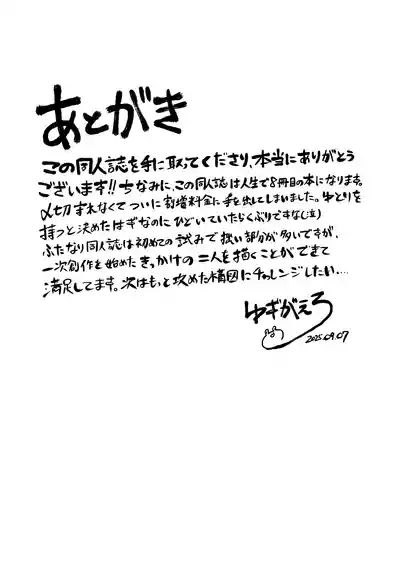 あとがき
この同人誌を手に取ってくださり、本当にありがとう
ございます!! ちなみに、この同人誌は人生で8冊目の本になります。
〆切守れなくてついに割増料金に手を出してしまいました。ゆとりを
持つと決めたはずなのにひどいていたらくぶりですな(泣)
ふたなり同人誌は初めての試みで拙い部分が多いですが、
一次創作を始めたきっかけの二人を描くことができて
満足してます。次はもっと攻めた構図にチャレンジしたい…
ゆぎがえろ
2025.09.07